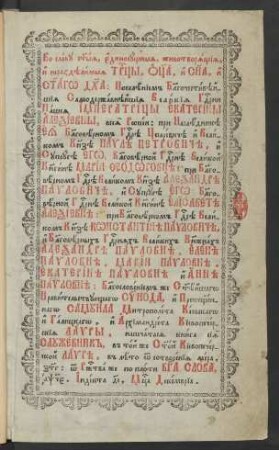 Во славу ст҃ы́ѧ, є҆диносꙋ́щныѧ, животворѧ́щїѧ,
и҆ нераздѣ́лимыѧ ТР҃ЦЫ, Ѻ҆Ц҃А̀, и҆ СН҃А, и҆
СТ҃А́ГѠ ДХ҃А: Повелѣ́нїемъ Благочести́вѣйшїѧ
Самодержа́внѣйшїѧ Вели́кїѧ
на́шеѧ И҆МПЕРАТРИ́ЦЫ Е҆КАТЕРІ́НЫ
А҆ЛЕѮІ́ЕВНЫ, всеѧ̀ Рѡссі́и: при Наслѣ́дникѣ
Е҆Ѧ̀ Благовѣ́рномъ Гд҇рѣ Цесаре́вичѣ и҆ Вели́комъ
Кнѧ́зѣ ПА́ѴЛѢ ПЕТРО́ВИЧѢ, и҆
Сꙋпрꙋ́гѣ Е҆ГѠ̀, Благовѣ́рной Гд҇рнѣ Вели́кой
Кнѧги́нѣ МАРІ́И ѲЕО́ДОРОВНѢ: при Благовѣ́рномъ
Гд҇рѣ Вели́комъ Кнѧ́зѣ А҆ЛЕѮА́НДРѢ
ПА́ѴЛОВИЧѢ, и҆ Сꙋпрꙋ́гѣ Е҆ГѠ̀ Благовѣ́рной
Гд҇рнѣ Вели́кой Кнѧги́нѣ Е҆ЛІСАВЕ́ТѢ
А҆ЛЕѮІ́ЕВНѢ: при Благовѣ́рномъ Гд҇рѣ Вели́комъ
Кнѧ́зѣ КѠНСТАНТІ́НѢ ПА́ѴЛОВИЧѢ,
и҆ Благовѣ́рныхъ Гд҇рнѧхъ Вели́кихъ Кнѧжна́хъ
А҆ЛЕѮА́НДРѢ ПА́ѴЛОВНѢ, Е҆ЛЕ́НѢ
ПА́ѴЛОВНѢ, МАРІ́И ПА́ѴЛОВНѢ,
Е҆КАТЕРІ́НѢ ПА́ѴЛОВНѢ и҆ А҆́ННѢ
ПА́ѴЛОВНѢ: Благослове́нїемъ же Ст҃ѣ́йшагѡ
Прави́тельствꙋющагѡ СѴНО́ДА, и҆
САМꙊИ́ЛА Митрополі́та Кі́евскагѡ
и҆ Га́лицкагѡ, и҆ А҆рхїмандрі́та Кїевопече́рскїѧ
ЛА́ѴРЫ, напеча́тасѧ кни́га сїѧ̀
СЛꙊЖЕ́БНИКЪ, въ то́йже Ст҃о́й Кїевопече́рской
ЛА́ѴРѢ, въ лѣ́то ѿ сотворе́нїѧ мі́ра,
ѿ Ржⷭ҇тва̀ же по пло́ти БГ҃А СЛО́ВА,
І҆ндї́кта, Мцⷭ҇а Декемврїа.